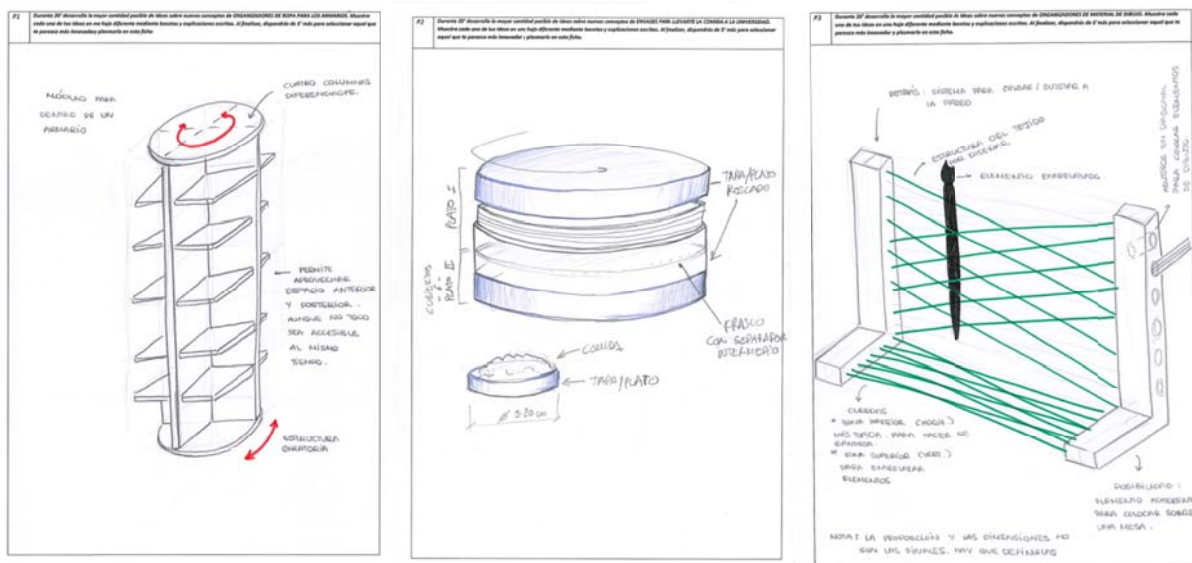 P1
Durante 20' desarrolla la mayor cantidad posible de ideas sobre nuevos conceptos de ORGANIZADORES DE ROPA PARA LOS ARMARIOS. Muestra
cada una de tus ideas en una hoja diferente mediante bocetos y explicaciones escritas. Al finalizar, dispondrás de 5' más para seleccionar aquel que
te parezca más innovador y plasmarlo en esta ficha.
MÓDULO PARA
DENTRO DE UN
ARMARIO
CUATRO COLUMNAS
PERMITE
APROVECHAR
ESPACIO ANTERIOR
Y POSTERIOR.
AUNQUE NO TODO
SEA ACCESIBLE
AL MISMO
TIEMPO.
ESTRUCTURA
GIRATORIA
P2
Durante 20' desarrolla la mayor cantidad posible de ideas sobre nuevos conceptos de ENVASES PARA LLEVARTE LA COMIDA A LA UNIVERSIDAD.
Muestra cada una de tus ideas en una hoja diferente mediante bocetos y explicaciones escritas. Al finalizar, dispondrás de 5' más para seleccionar
aquel que te parezca más innovador y plasmarlo en esta ficha.
PLATO I
CUBIERTOS
-ó-
PLATO II
TAPA/PLATO
ROSCADO
FRASCO
CON SEPARADOR
INTERMEDIO
COMIDA
TAPA/PLATO
20 cm
P3
Durante 20' desarrolla la mayor cantidad posible de ideas sobre nuevos conceptos de ORGANIZADORES DE MATERIAL DE DIBUJO. Muestra cada
una de tus ideas en una hoja diferente mediante bocetos y explicaciones escritas. Al finalizar, dispondrás de 5' más para seleccionar aquel que te
parezca más innovador y plasmarlo en esta ficha.
DETRÁS: SISTEMA PARA COLGAR / SUJETAR A
LA PARED
ESTRUCTURA DEL TEJIDO
POR DISEÑAR
ELEMENTO ENTRELAZADO.
AGUJEROS EN DIAGONAL
PARA COLOCAR ELEMENTOS
DE DIBUJO.
CUERDAS
* ZONA INFERIOR (HORIZ.)
MÁS TUPIDA. PARA HACER DE
BANDEJA.
* ZONA SUPERIOR (VERT.)
PARA ENTRELAZAR
ELEMENTOS
POSIBILIDAD:
ELEMENTO ADHERENTE
PARA COLOCAR SOBRE
UNA MESA.
NOTA: LA PROPORCIÓN Y LAS DIMENSIONES NO
SON LAS FINALES. HAY QUE DEFINIRLAS